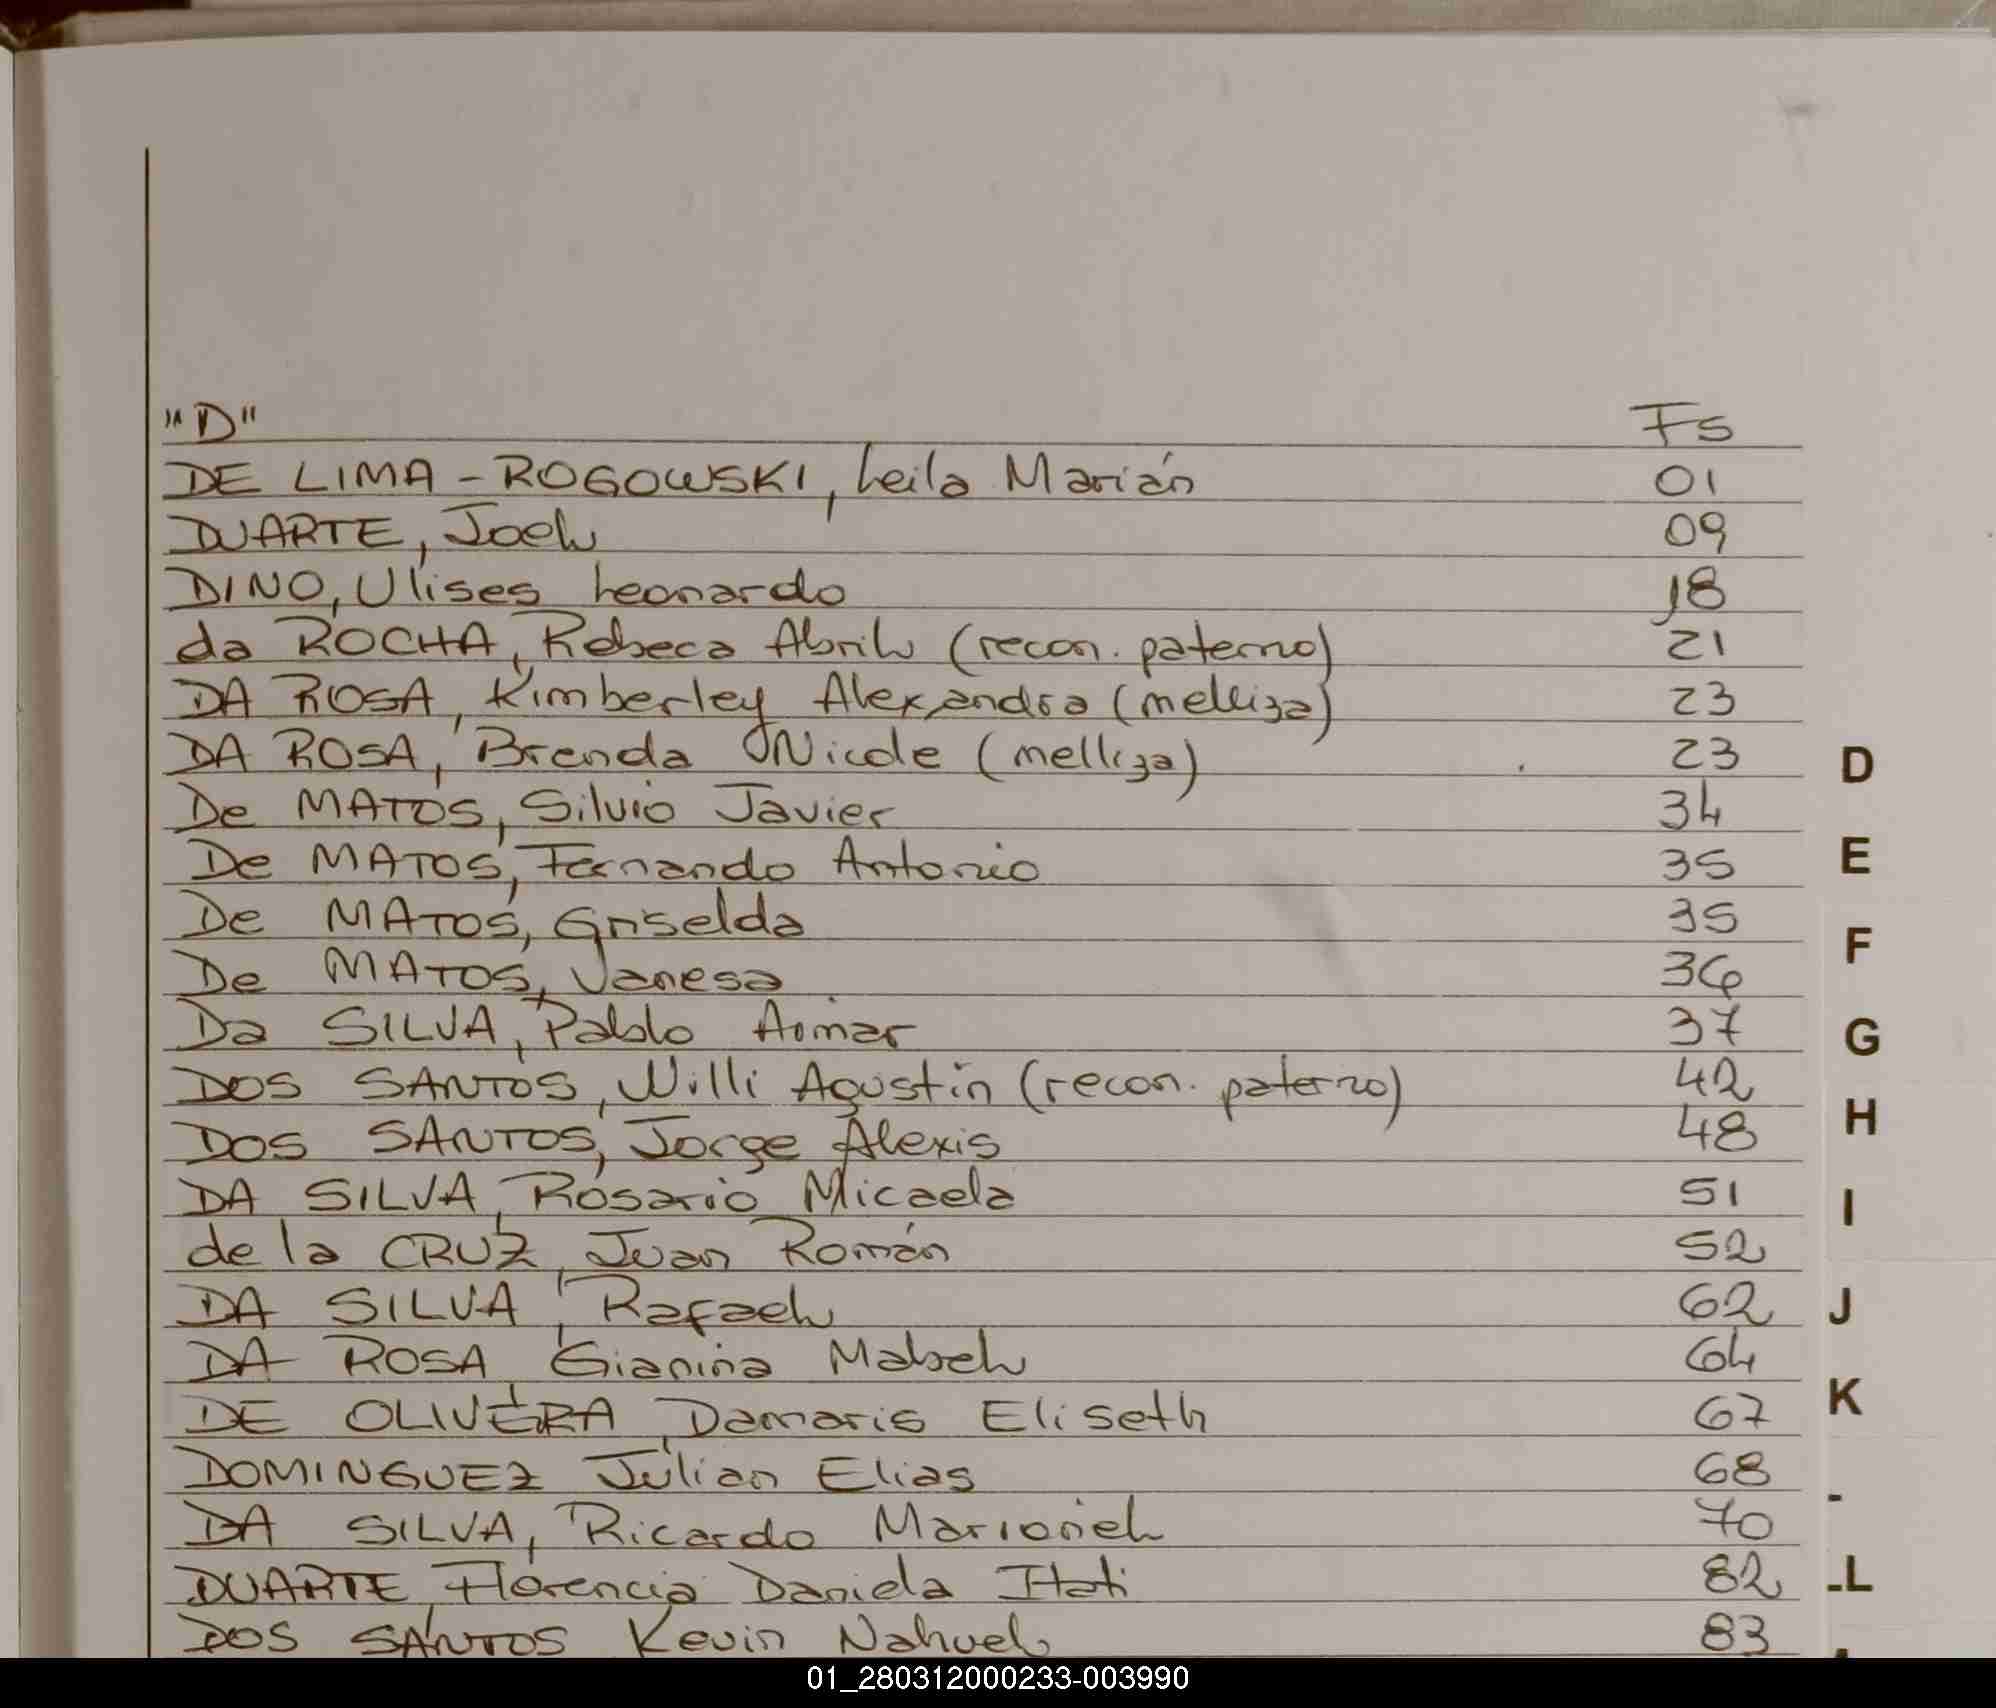 "D" Fs
DE LIMA - ROGOWSKI, Leila Marián 01
DUARTE, Joel 09
DINO, Ulises Leonardo 18
da ROCHA, Rebeca Abril (recon. paterno) 21
DA ROSA, Kimberley Alexandra (melliza) 23
DA ROSA, Brenda Nicole (melliza) 23
De MATOS, Silvio Javier 34
De MATOS, Fernando Antonio 35
De MATOS, Griselda 35
De MATOS, Vanesa 36
Da SILVA, Pablo Aimar 37
DOS SANTOS, Willi Agustín (recon. paterno) 42
DOS SANTOS, Jorge Alexis 48
DA SILVA, Rosario Micaela 51
de la CRUZ, Juan Román 52
DA SILVA, Rafael 62
DA ROSA, Gianina Mabel 64
DE OLIVERA, Damaris Eliseth 67
DOMINGUEZ, Julian Elias 68
DA SILVA, Ricardo 70
DUARTE, Florencia Daniela Itati 82
DOS SANTOS, Kevin Nahuel 83
D
E
F
G
H
I
J
K
-
-L
01_280312000233-003990